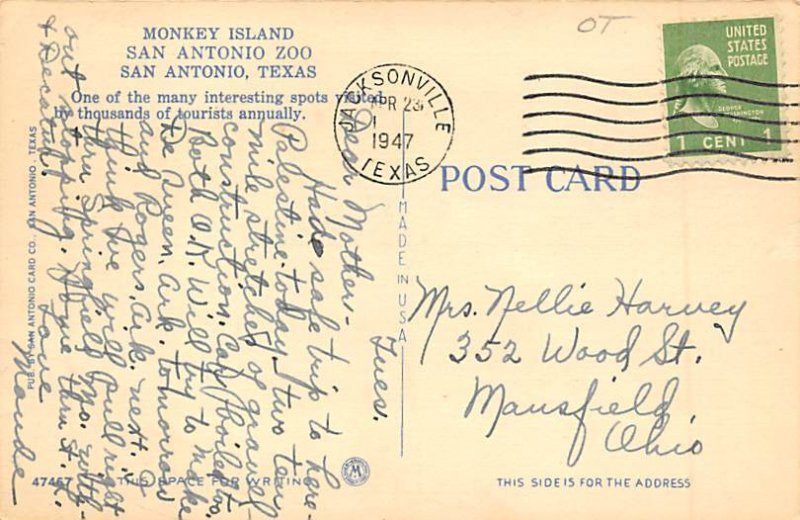 MONKEY ISLAND
SAN ANTONIO ZOO
SAN ANTONIO, TEXAS
One of the many interesting spots visited
by thousands of tourists annually.
OT
UNITED
STATES
POSTAGE
GEORGE
WASHINGTON
1 CENT 1
JACKSONVILLE
APR 23
1947
TEXAS
POST CARD
MADE IN USA
Tues.
Dear Mother:-
Had a safe trip to here-
Palestine today. Two ten
mile stretches of gravel-
construction. Car & boiler too.
Both O.K. Will try to make
De Queen, Ark. tomorrow
and Rogers, Ark. next. I
think we will pull right
thru Springfield Mo. with-
out stopping. Home thru St. L.
& Decatur.
Love
Maude
Mrs. Nellie Harvey
352 Wood St.
Mansfield,
Ohio
PUB. BY SAN ANTONIO CARD CO., SAN ANTONIO, TEXAS
47467
THIS SPACE FOR WRITING
THIS SIDE IS FOR THE ADDRESS